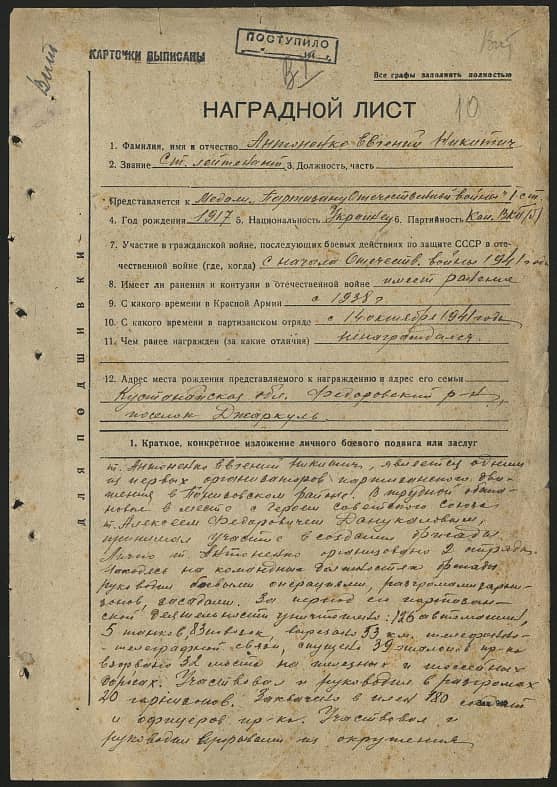 ПОСТУПИЛО
КАРТОЧКИ ВЫПИСАНЫ
Вит
Вит
Все графы заполнять полностью
НАГРАДНОЙ ЛИСТ
10
1. Фамилия, имя и отчество Антоненко Евгений Никитич
2. Звание Ст. лейтенант 3. Должность, часть
Представляется к Медали „Партизану Отечественной войны" 1 ст
4. Год рождения 1917 5. Национальность Украинец 6. Партийность Кан. ВКП(б)
7. Участие в гражданской войне, последующих боевых действиях по защите СССР в оте-
чественной войне (где, когда) с начала Отечеств. войны 1941 года
8. Имеет ли ранения и контузии в отечественной войне имеет ранения
9. С какого времени в Красной Армии с 1938 г
10. С какого времени в партизанском отряде с 14 октября 1941 года
11. Чем ранее награжден (за какие отличия) ненаграждался.
12. Адрес места рождения представляемого к награждению и адрес его семьи
Кустанайская обл. Федоровский р-н,
поселок Джаркуль
ДЛЯ ПОДШИВКИ
1. Краткое, конкретное изложение личного боевого подвига или заслуг
т. Антоненко Евгений Никитич, является одним
из первых организаторов партизанского дви-
жения в районе. В трудной обста-
новке в месте с Героем Советского Союза
т. Алексеем Федоровичем Данукаловым,
принимал участие в создании бригады.
Лично т. Антоненко организовано 2 отряда.
Находясь на командных должностях бригады
руководил боевыми операциями, разгромами гарни-
зонов, засадами. За период партизан-
ской деятельности уничтожено: 126 автомашин,
5 танков, 83 повозок, вырезано 53 км. телефонно-
-телеграфной связи, спущено 39 эшалонов пр-ка
взорвано 32 моста на железных и шоссейных
дорогах. Участвовал и руководил в разгромах
20 гарнизонов. Захвачено в плен 180 солдат
и офицеров пр-ка. Участвовал и
руководил из окружения